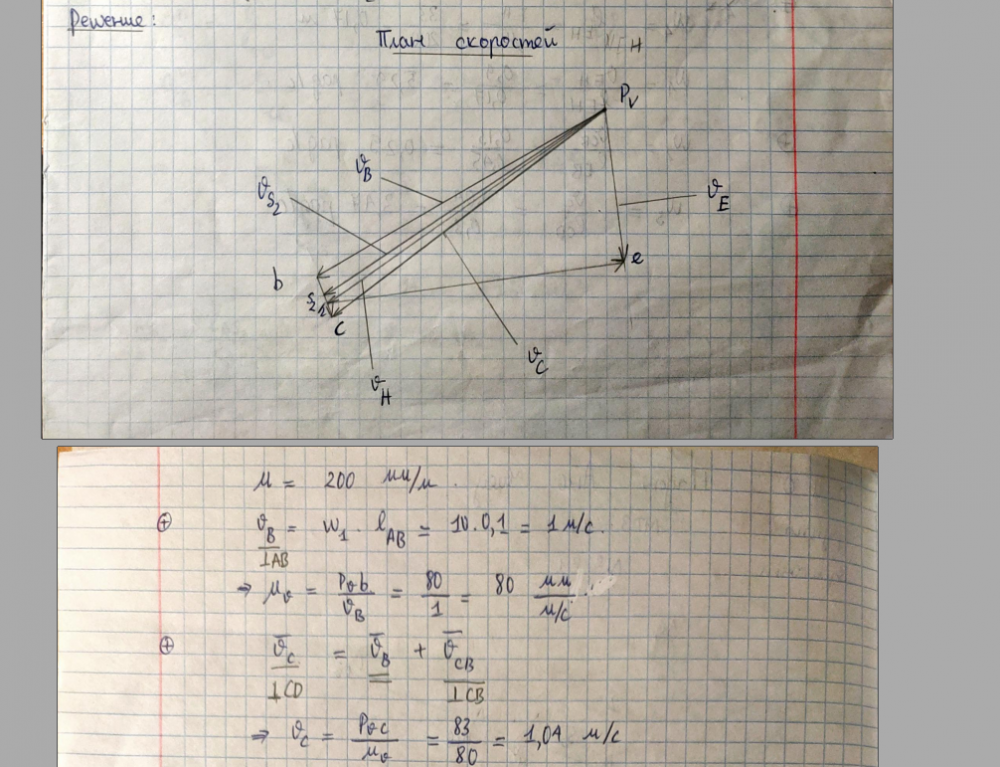 Решение:
План скоростей
H
P_V
ϑ_B
ϑ_S₂
ϑ_E
b
e
S₂
h
c
ϑ_C
ϑ_H
M = 200 мм/м
⊕ ϑ_B = ω₁ · l_AB = 10 · 0,1 = 1 м/с.
⊥AB
⇒ μ_ϑ = P_ϑb / ϑ_B = 80 / 1 = 80 мм / м/с
⊕ ϑ̄_C = ϑ̄_B + ϑ̄_CB
⊥CD ⊥CB
⇒ ϑ_C = P_ϑc / μ_ϑ = 83 / 80 = 1,04 м/с